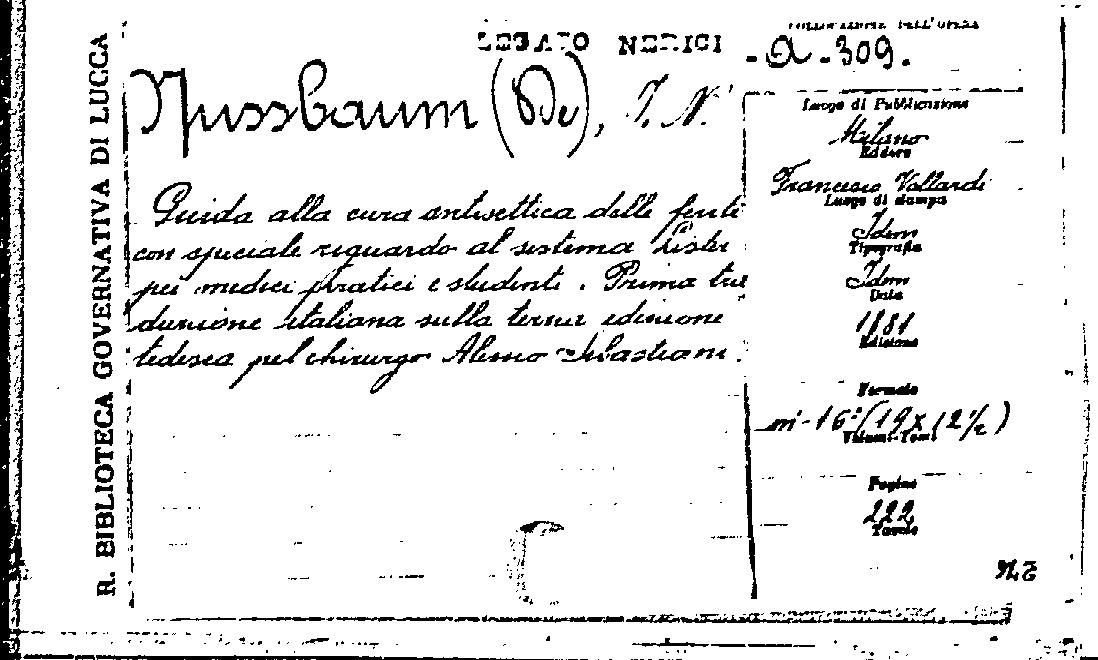 R. BIBLIOTECA GOVERNATIVA DI LUCCA
LEGATO NERICI
COLLOCAZIONE DELL'OPERA
- A - 309.
Nussbaum (De), I. N.
Guida alla cura antisettica delle feriti
con speciale riguardo al sistema Lister
pei medici pratici e studenti. Prima tra
duzione italiana sulla terza edizione
tedesca pel chirurgo Sebastiani.
Luogo di Pubblicazione
Milano
Editore
Francesco Vallardi
Luogo di stampa
Idem
Tipografia
Idem
Data
1881
Edizione
Formato
in-16°(19x12½)
Volumi-Tomi
Pagine
222
Tavole